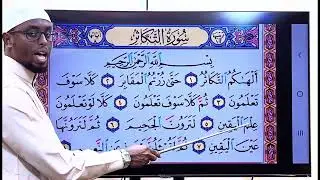 سُورَةُ التَّكَاثُرِ
بِسْمِ اللَّهِ الرَّحْمَٰنِ الرَّحِيمِ
أَلْهَاكُمُ التَّكَاثُرُ ١ حَتَّىٰ زُرْتُمُ الْمَقَابِرَ ٢ كَلَّا سَوْفَ
تَعْلَمُونَ ٣ ثُمَّ كَلَّا سَوْفَ تَعْلَمُونَ ٤ كَلَّا لَوْ تَعْلَمُونَ
عِلْمَ الْيَقِينِ ٥ لَتَرَوُنَّ الْجَحِيمَ ٦ ثُمَّ لَتَرَوُنَّهَا
عَيْنَ الْيَقِينِ ٧ ثُمَّ